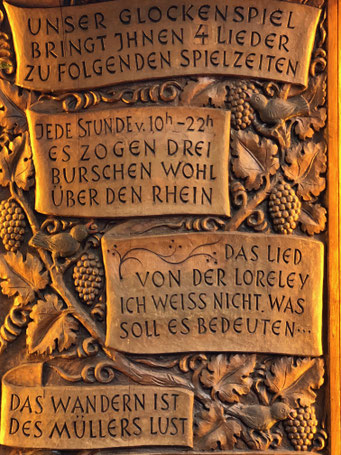 UNSER GLOCKENSPIEL
BRINGT JHNEN 4 LIEDER
ZU FOLGENDEN SPIELZEITEN
JEDE STUNDE v. 10h–22h
ES ZOGEN DREI
BURSCHEN WOHL
ÜBER DEN RHEIN
DAS LIED
VON DER LORELEY
ICH WEISS NICHT, WAS
SOLL ES BEDEUTEN...
DAS WANDERN IST
DES MÜLLERS LUST